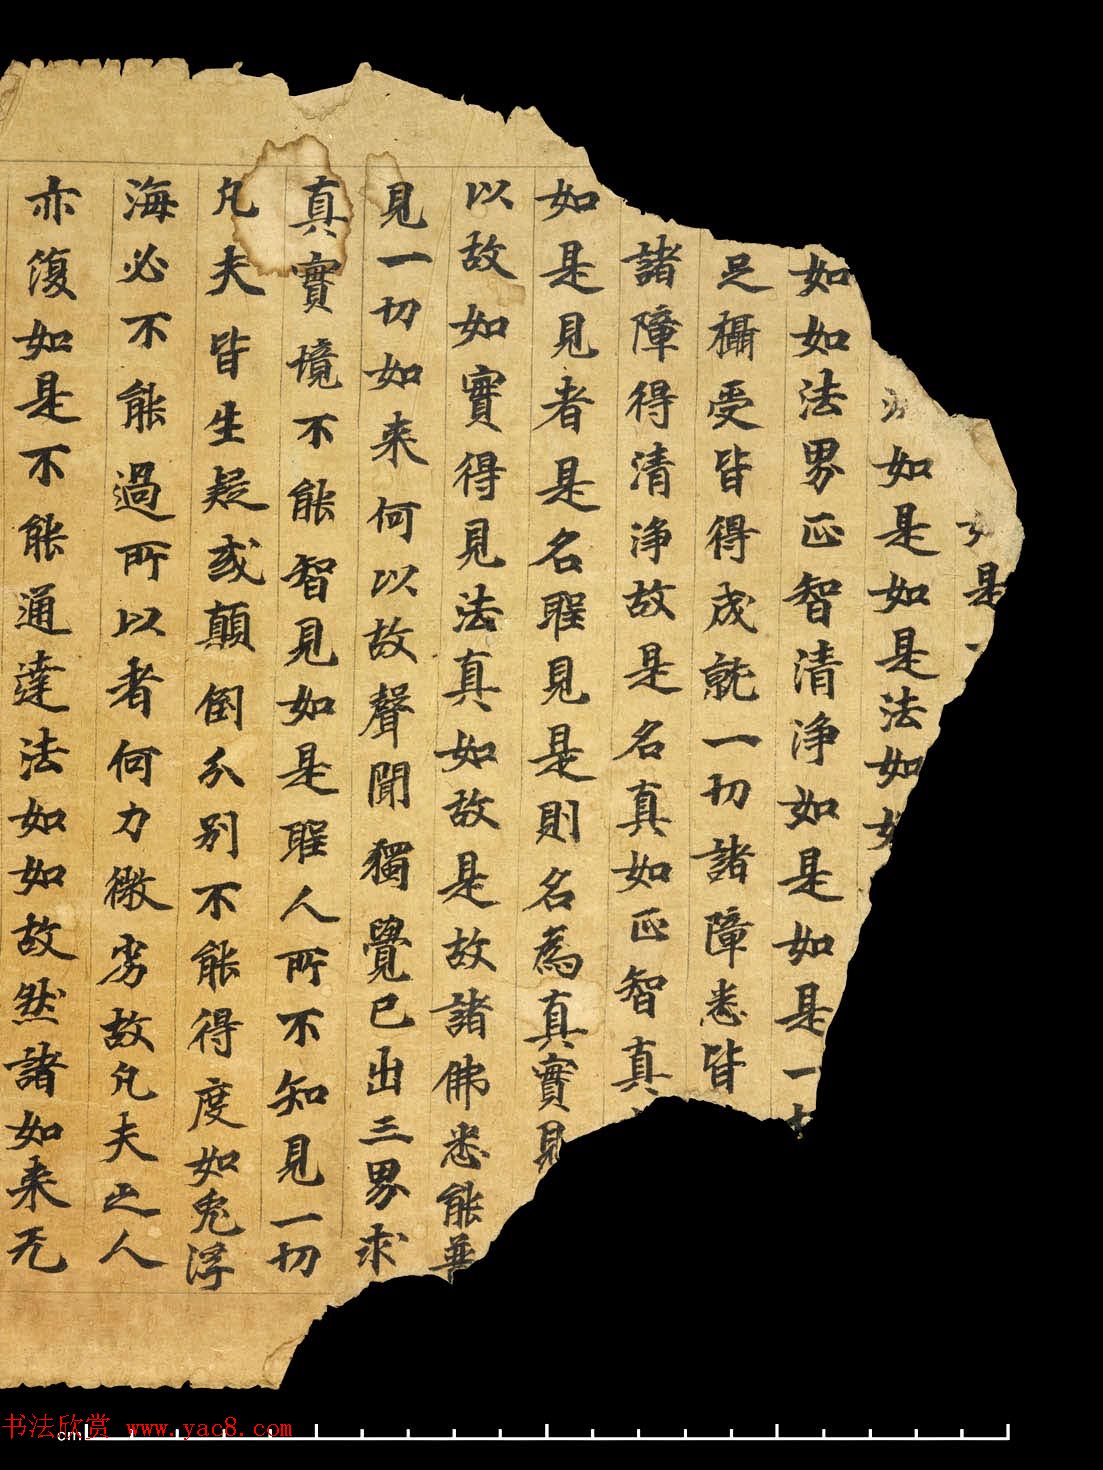 如是
法如是如是法如如
如如法界正智清淨如是如是一切
足攝受皆得成就一切諸障悉皆
諸障得清淨故是名真如正智真
如是見者是名聖見是則名為真實見
以故如實得見法真如故是故諸佛悉能普
見一切如來何以故聲聞獨覺已出三界求
真實境不能智見如是聖人所不知見一切
凡夫皆生疑或顛倒分別不能得度如兔浮
海必不能過所以者何力微劣故凡夫之人
亦復如是不能通達法如如故然諸如來无
书法欣赏 www.yac8.com
cm